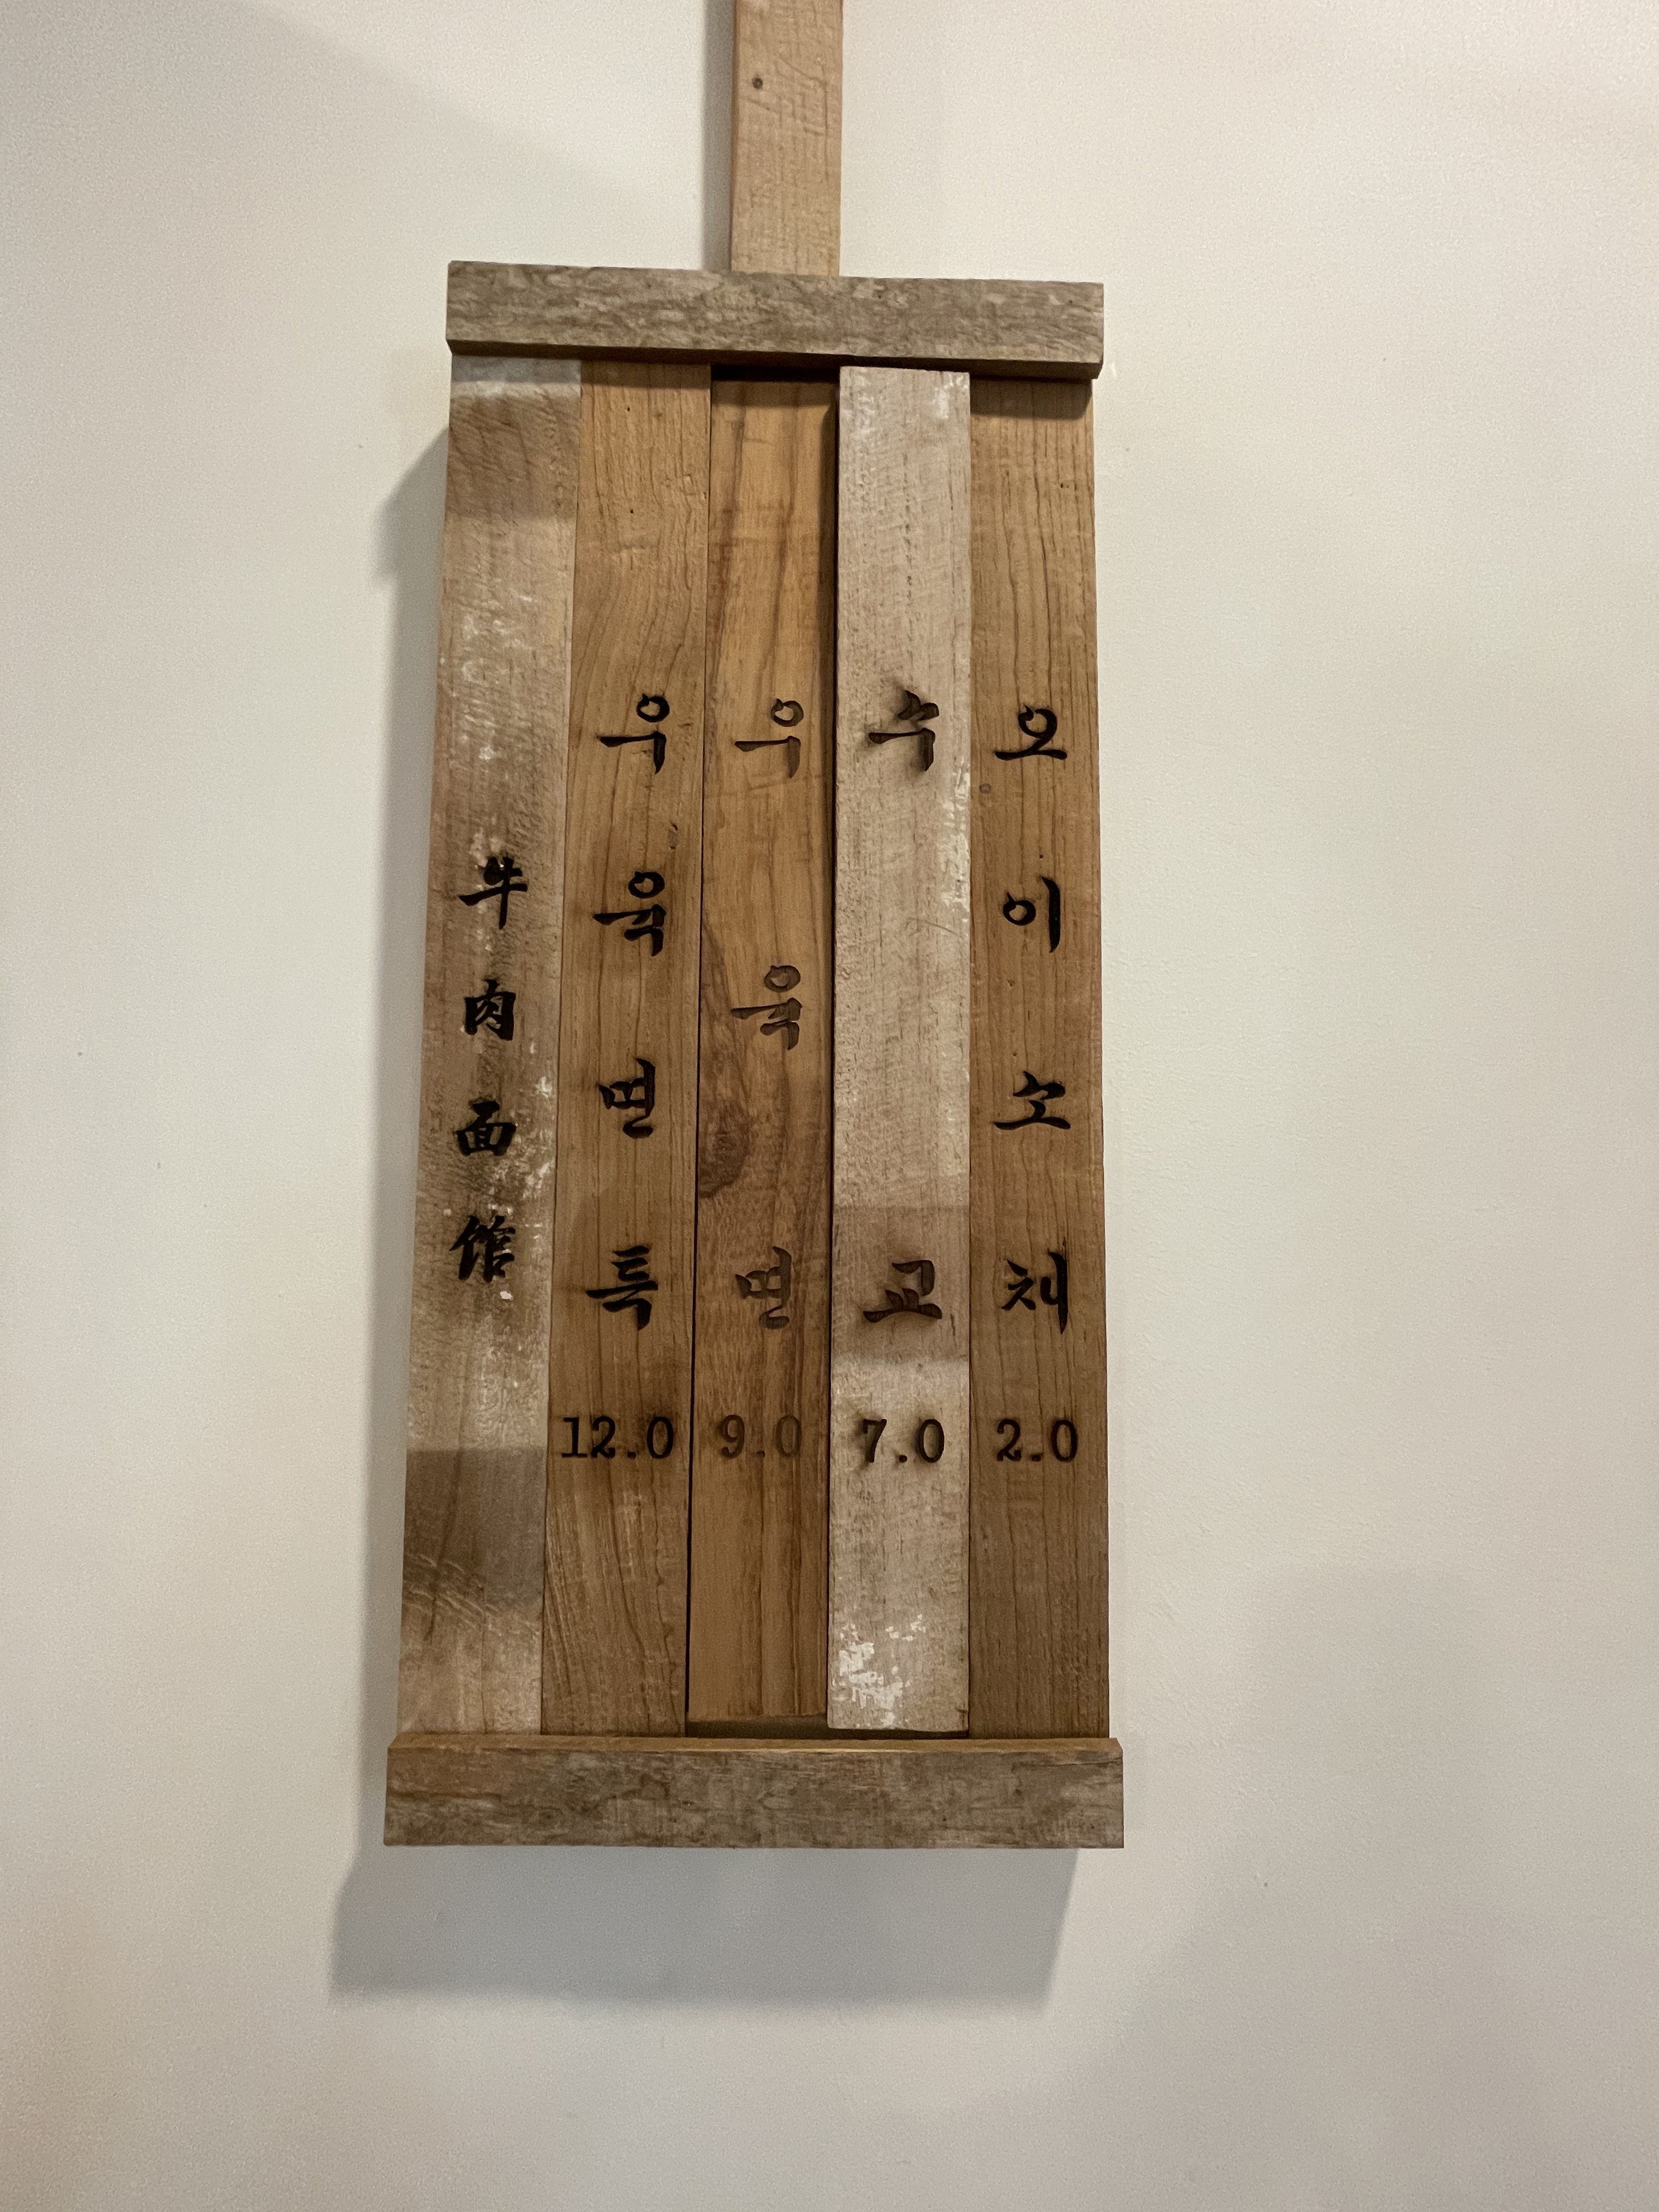 牛肉面馆
우육면특 12.0
우육면 9.0
수교 7.0
오이소채 2.0